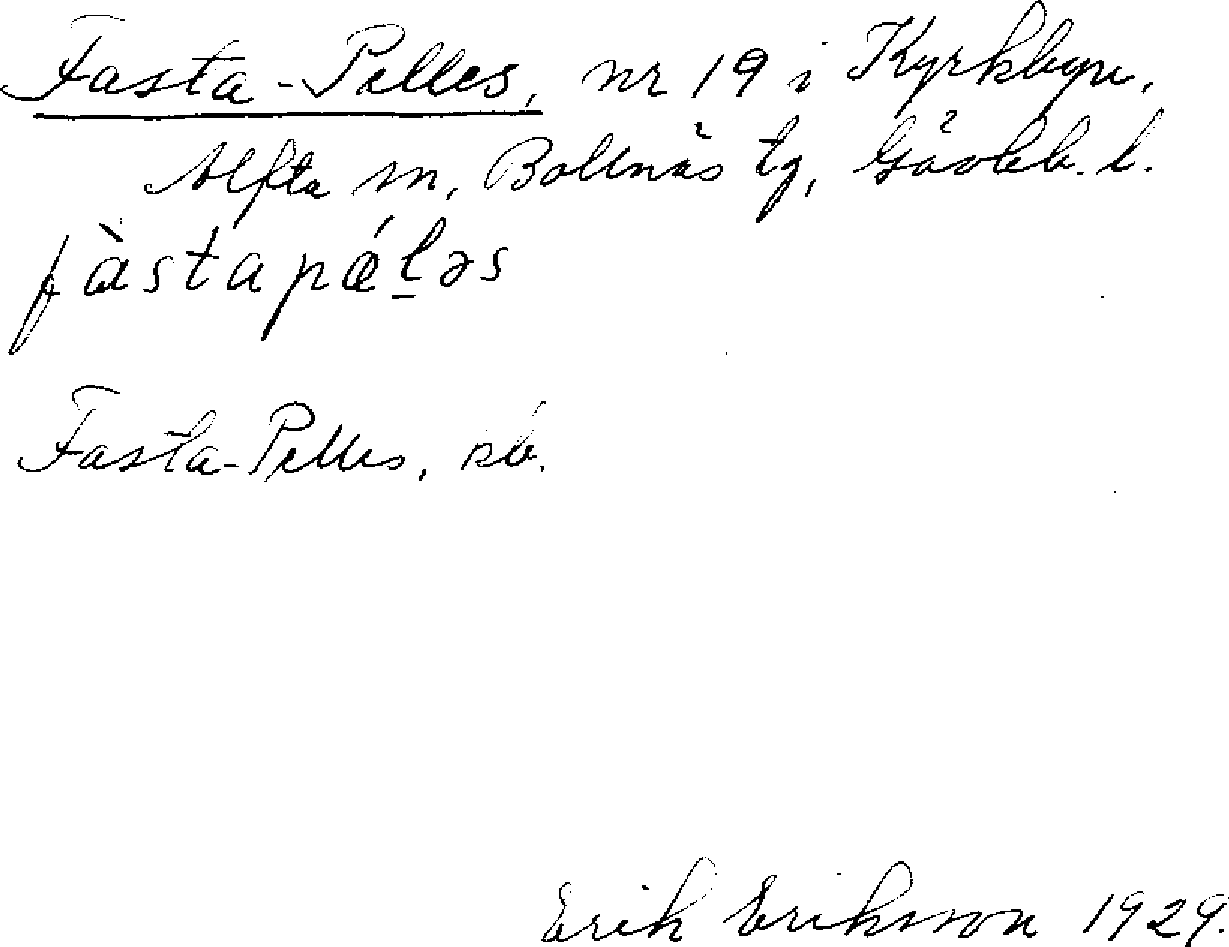 Fasta-Pelles, nr 19 i Kyrkbyn,
Alfta sn, Bollnäs tg, Gävleb. l.
fàstapǽl̠əs
Fasta-Pelles, sb.
Erik Eriksson 1929.